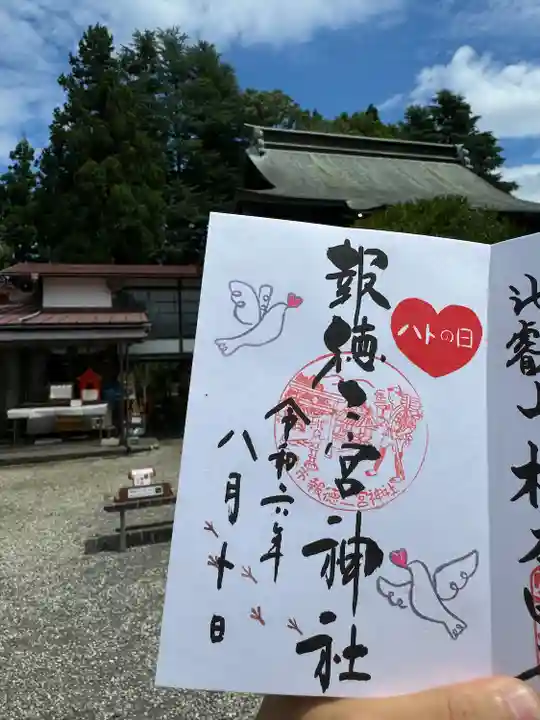 報徳二宮神社
ハトの日
報徳二宮神社
令和六年
八月十日